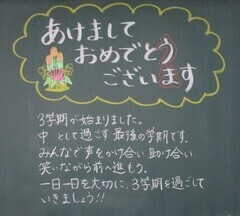 あけまして
おめでとう
ございます
3学期が始まりました。
中 として過ごす 最後の学期です。
みんなで声をかけ合い 助け合い
笑いながら前へ進もう。
一日一日を大切に、3学期を過ごして
いきましょう!!